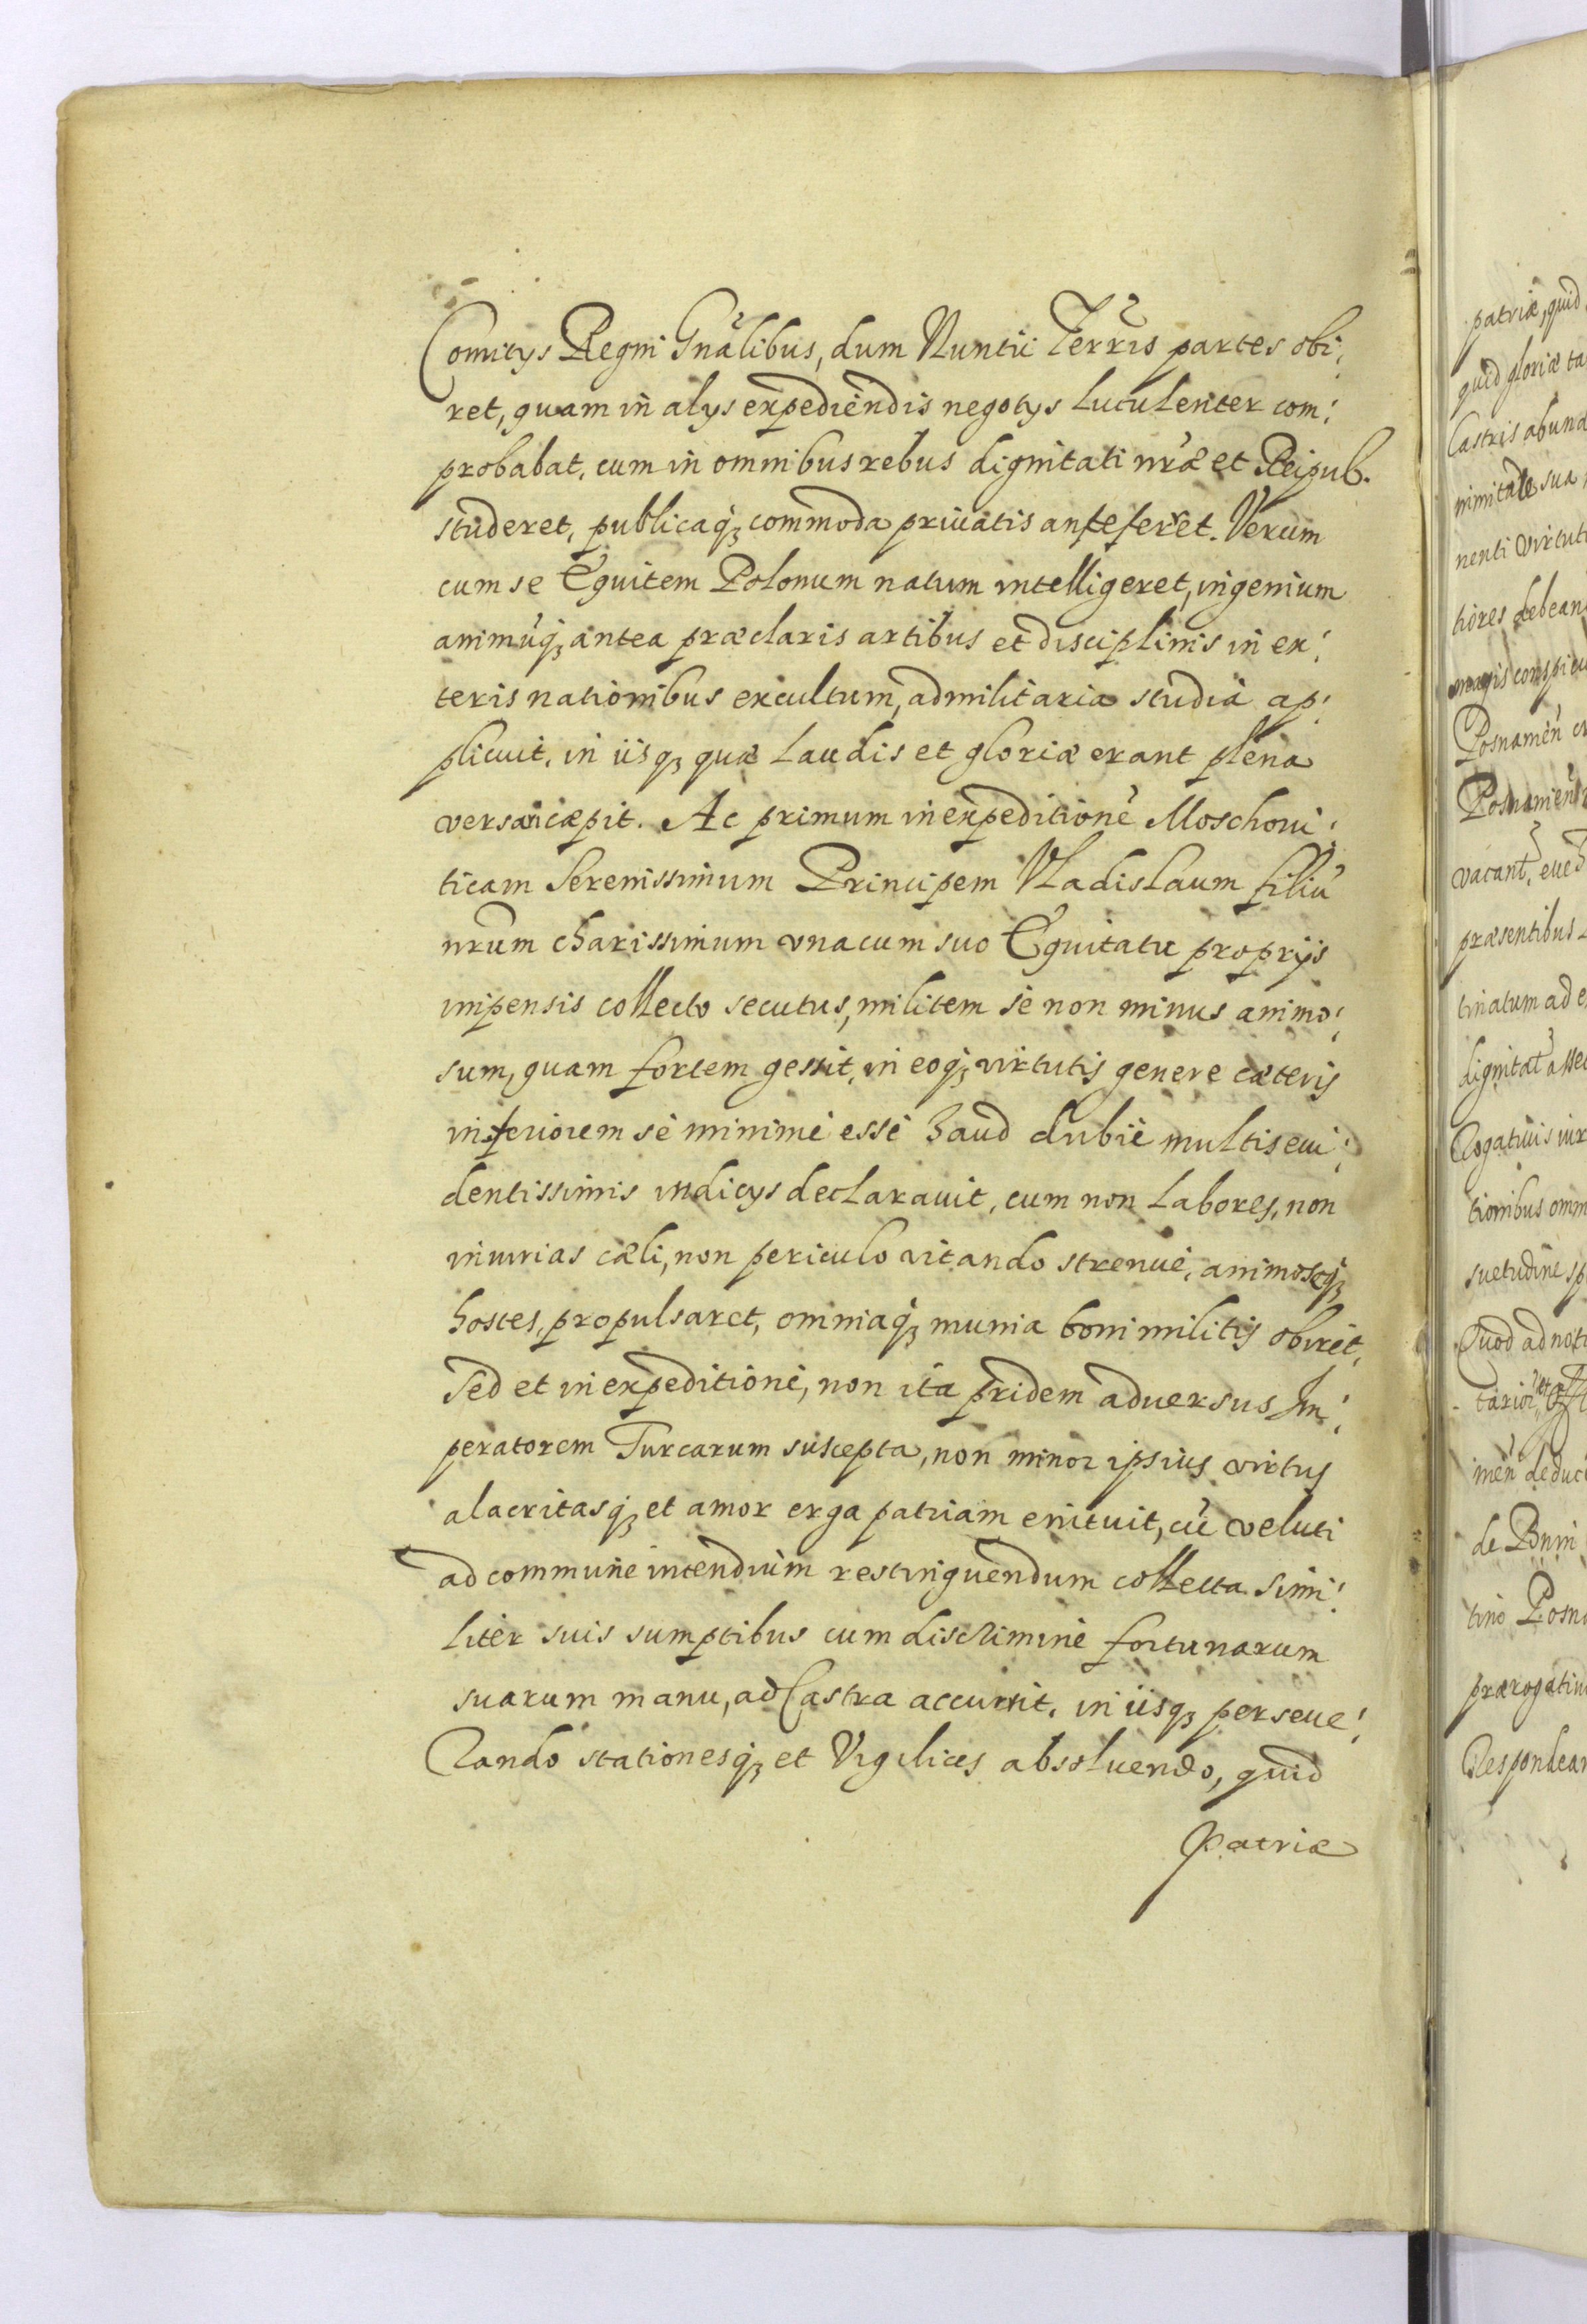 Comitys Regni Gnãlibus, dum Nuntii Terris̃ partes obi:
ret, quam in alys expediendis negotys luculenter com:
probabat, cum in omnibus rebus dignitati nr̃æ et Reipub.
studeret, publicaq₃ commoda priuatis anteferret. Verum
cum se Equitem Polonum natum intelligeret, ingenium
animũq₃ antea præclaris artibus et disciplinis in ex:
teris nationibus excultum, ad militaria studia ap:
plicuit, in iisq₃ quæ laudis et gloriæ erant plena
versari cæpit. Ac primum in expeditione Moschoui:
ticam Serenissimum Principem Vladislaum filiũ
nr̃um charissimum vna cum suo Equitatu proprijs
impensis collecto secutus, militem se non minus animo:
sum, quam fortem gessit, in eoq₃ virtutis genere cæteris
inferiorem se minime esse haud dubie multis eui:
dentissimis indicys declarauit, cum non labores, non
iniurias cæli, non periculo vitando strenue, animoseq₃
hostes, propulsaret, omniaq₃ munia boni militis obiret,
Sed et in expeditione, non ita pridem aduersus Im:
peratorem Turcarum suscepta, non minor ipsius virtus
alacritasq₃ et amor erga patriam enituit, cũ veluti
ad commune intendium restinguendum collecta simi:
liter suis sumptibus cum discrimine fortunarum
suarum manu, ad Castra accurrit, in iisq₃ perseue:
rando stationesq₃ et Vigilices absoluendo, quid
patriæ
patriæ, quid
quid gloriæ ta
Castris abund
nimitate sua
nenti virtuti
tiores debean
magis conspicu
Posnameñ
Posnamieñ
vacant̃, eueh
præsentibus
tinatum ad e
dignitat̃ assec
rogatiuis iur
tionibus omn
suetudine sp
Quod ad noti
meñ deduc
de Bnin
tino Posn
prærogatiu
Respondean